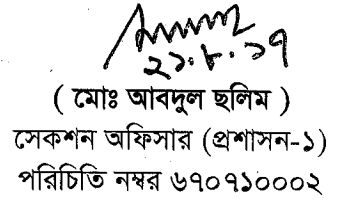 ২১.৮.১৭
( মোঃ আবদুল ছলিম )
সেকশন অফিসার (প্রশাসন-১)
পরিচিতি নম্বর ৬৭০৭১০০০২